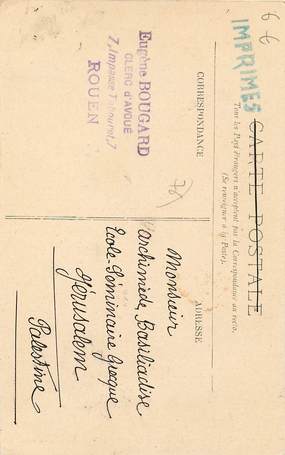 6 6
IMPRIMES
CARTE POSTALE
Tous les Pays étrangers n'acceptent pas la Correspondance au recto.
(Se renseigner à la Poste).
CORRESPONDANCE
ADRESSE
Eugène BOUGARD
CLERC d'AVOUÉ
7, Impasse Tabouret, 7
ROUEN
Monsieur
Archimède Basiliadise
Ecole-Séminaire Grecque
Jérusalem
Palestine